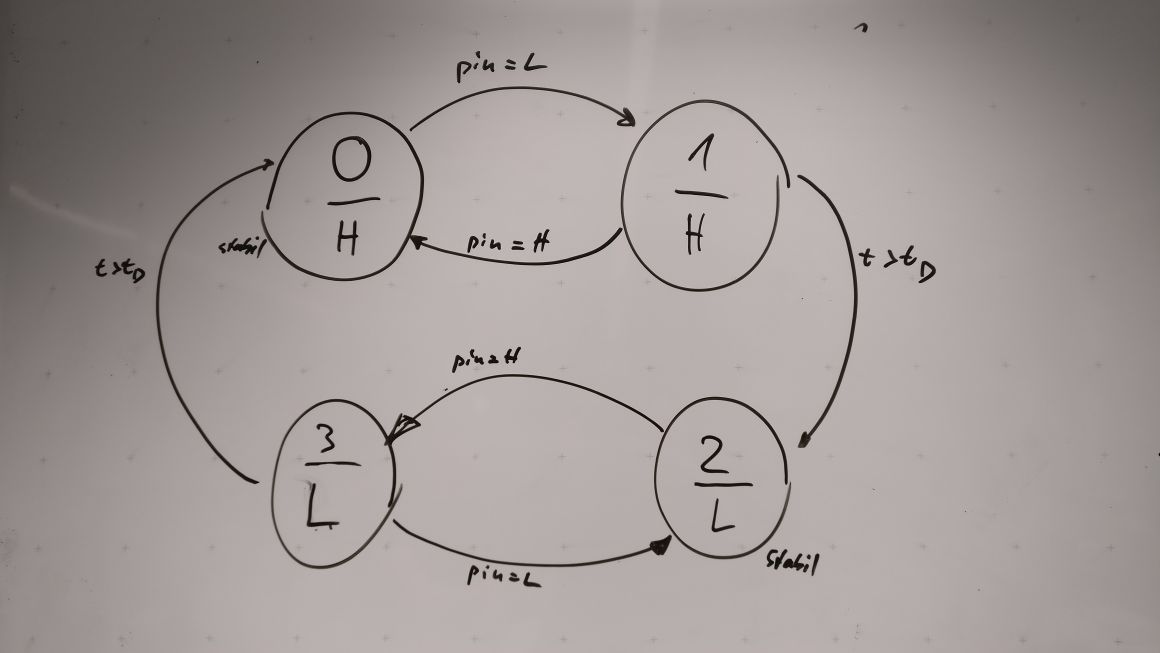 pin = L
0
H
1
H
stabil
pin = H
t > t_D
t > t_D
pin = H
3
L
2
L
stabil
pin = L